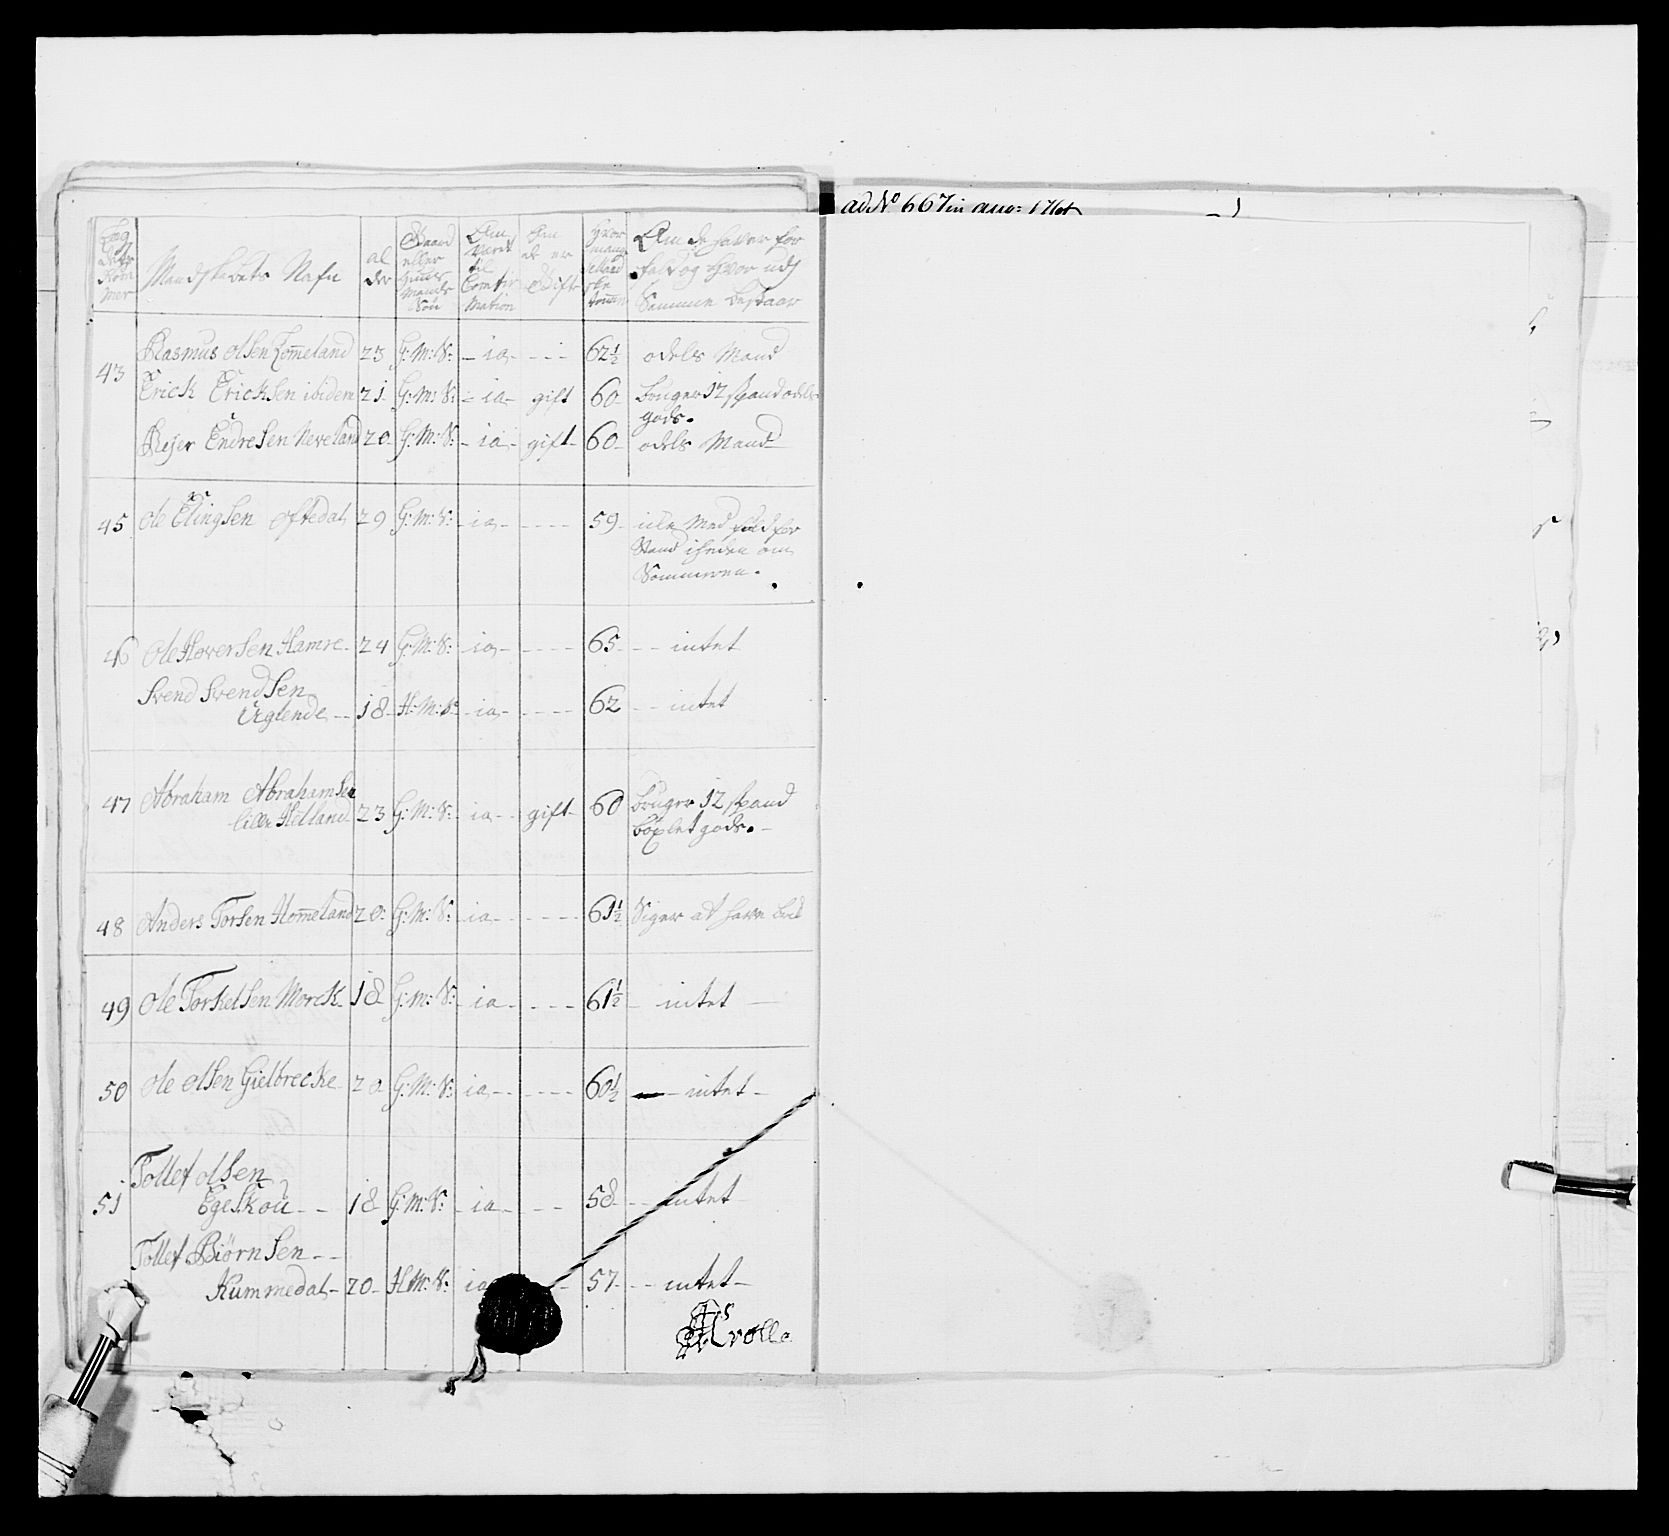 ad No 667 in anno: 1764
Læg
dets
Num
mer
Mandskabets Nafn
al
der
Gaard
eller
Huus
Mands
Søn
Om
Været
til
Confir
Mation
Om
de er
Gift
Hvor
mang
Sielland
ske
tomer
Om de haver for
fald og hvor udj
Samme bestaar
43 Rasmus Olsen Homeland 23 G: M: S: - ia - - - - 62½ odels Mand
Erick Ericksen ibidem 21 G: M: S: - ia - gift 60 - bruger 12 spand odels
gods.
Rejer Endresen Neveland 20 G: M: S: - ia - gift - 60 - odels Mand
45 Ole Elingsen Oftedal 29 G: M: S: - ia - - - - 59 -
Sommeren.
46 Ole Hoversen Hamre - 24 G: M: S: - ia - - - - 65 - - - intet
Svend Svendsen
Uglende - - 18 - H: M: S: - ia - - - - 62 - - intet
47 Abraham Abrahamsen
lille Helland 23 G: M: S: - ia - - gift - 60 bruger 12 spand
böxlet gods. -
48 Anders Torsen Homeland 20 - G: M: S: - ia - - - - 61½ Siger at have
49 Ole Torkelsen Morck - 18 - G: M: S: - ia - - - - 61½ - intet -
50 Ole Olsen Gielbrecke - 20 G: M: S: ia - - - - - 60½ - intet -
51 Tollef Olsen
Egeskou - - 18 - G: M: S: - ia - - - 58 - - intet
Tollef Biørnsen - -
Kummedal - 20 - H: M: S: ia 57 - - - intet -